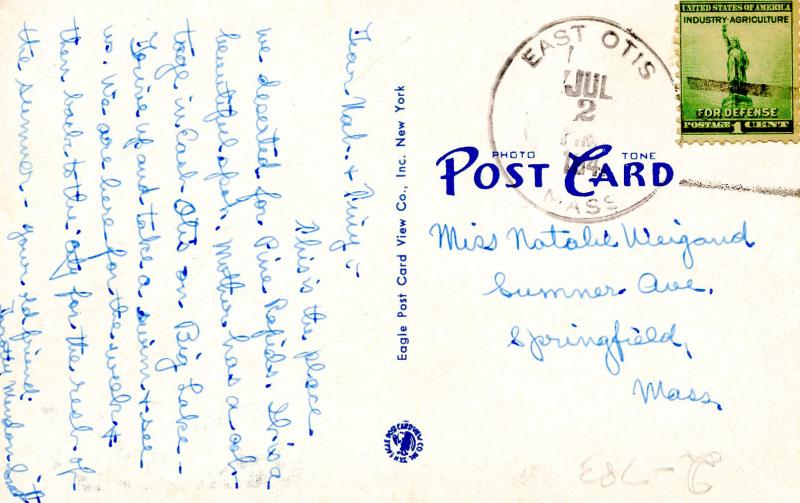 Dear Nat. &
This is the place
we deserted for Pine Rapids. It is a
beautiful spot. Mother has a cot-
tage in East Otis on Big Lake -
Drive up and take a swim & see
us. We are here for the week &
then back to the city for the rest of
the summer - your old friend.
Dorothy
Eagle Post Card View Co., Inc. New York
EAGLE POST CARD VIEW CO. INC.
EAST OTIS
JUL
2
MASS
UNITED STATES OF AMERICA
INDUSTRY-AGRICULTURE
FOR DEFENSE
POSTAGE 1 CENT
PHOTO TONE
POST CARD
Miss Natalie Weigand
Sumner Ave.
Springfield,
Mass.